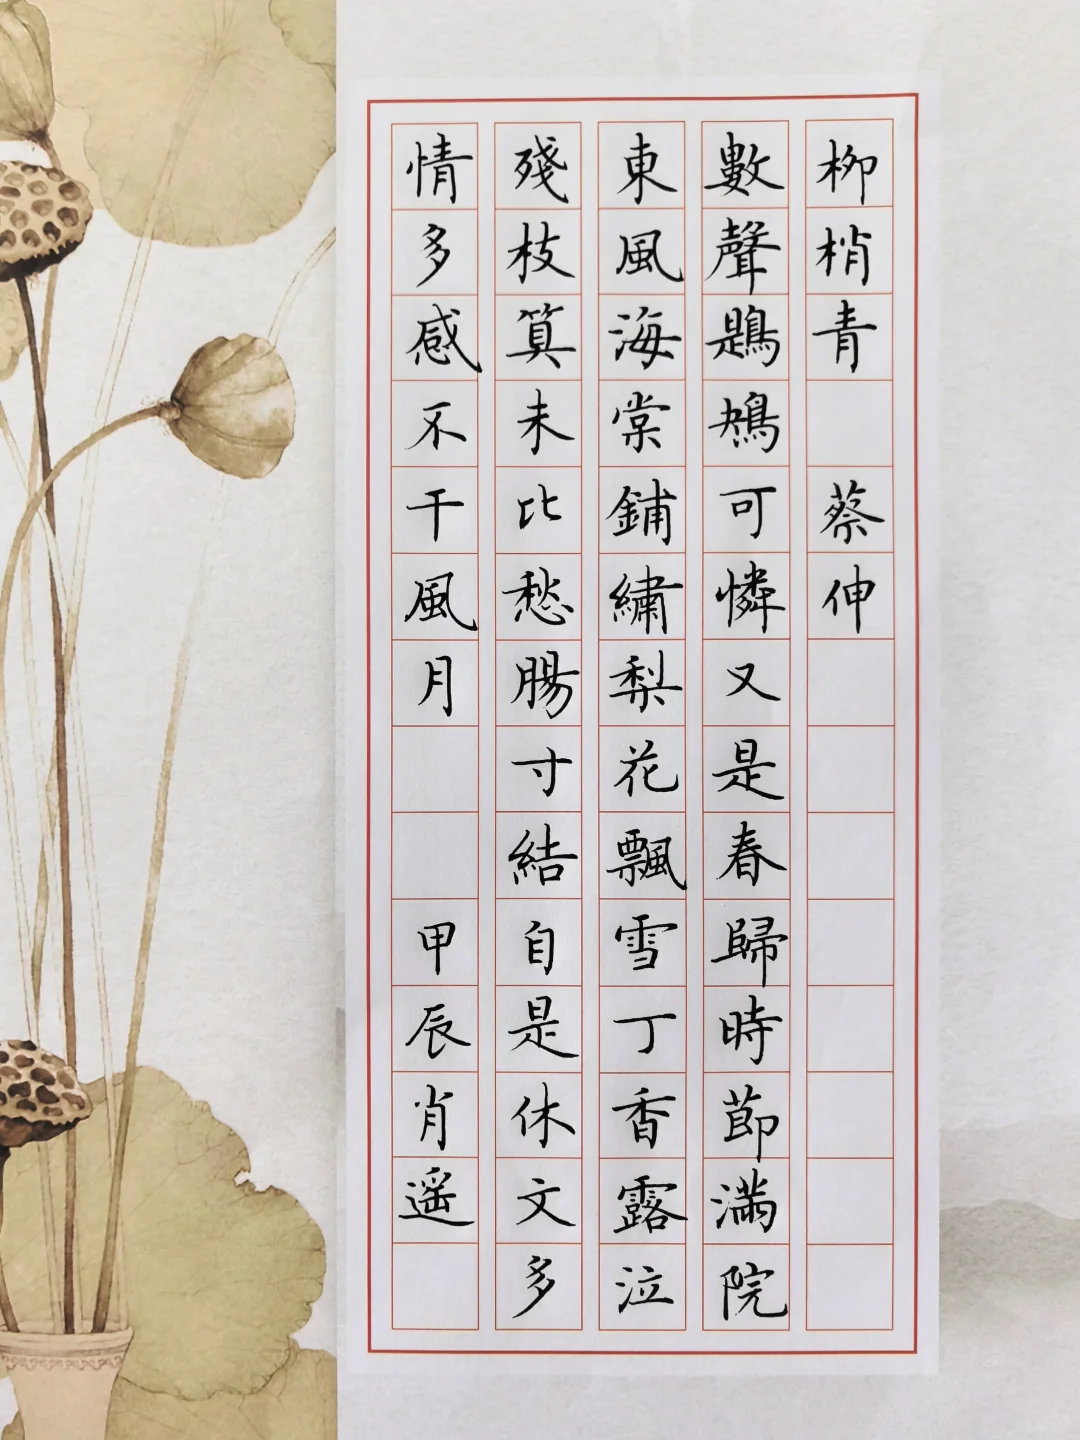 柳梢青 蔡伸
數聲鶗鴂可憐又是春歸時節滿院
東風海棠鋪繡梨花飄雪丁香露泣
殘枝算未比愁腸寸結自是休文多
情多感不干風月 甲辰肖遥